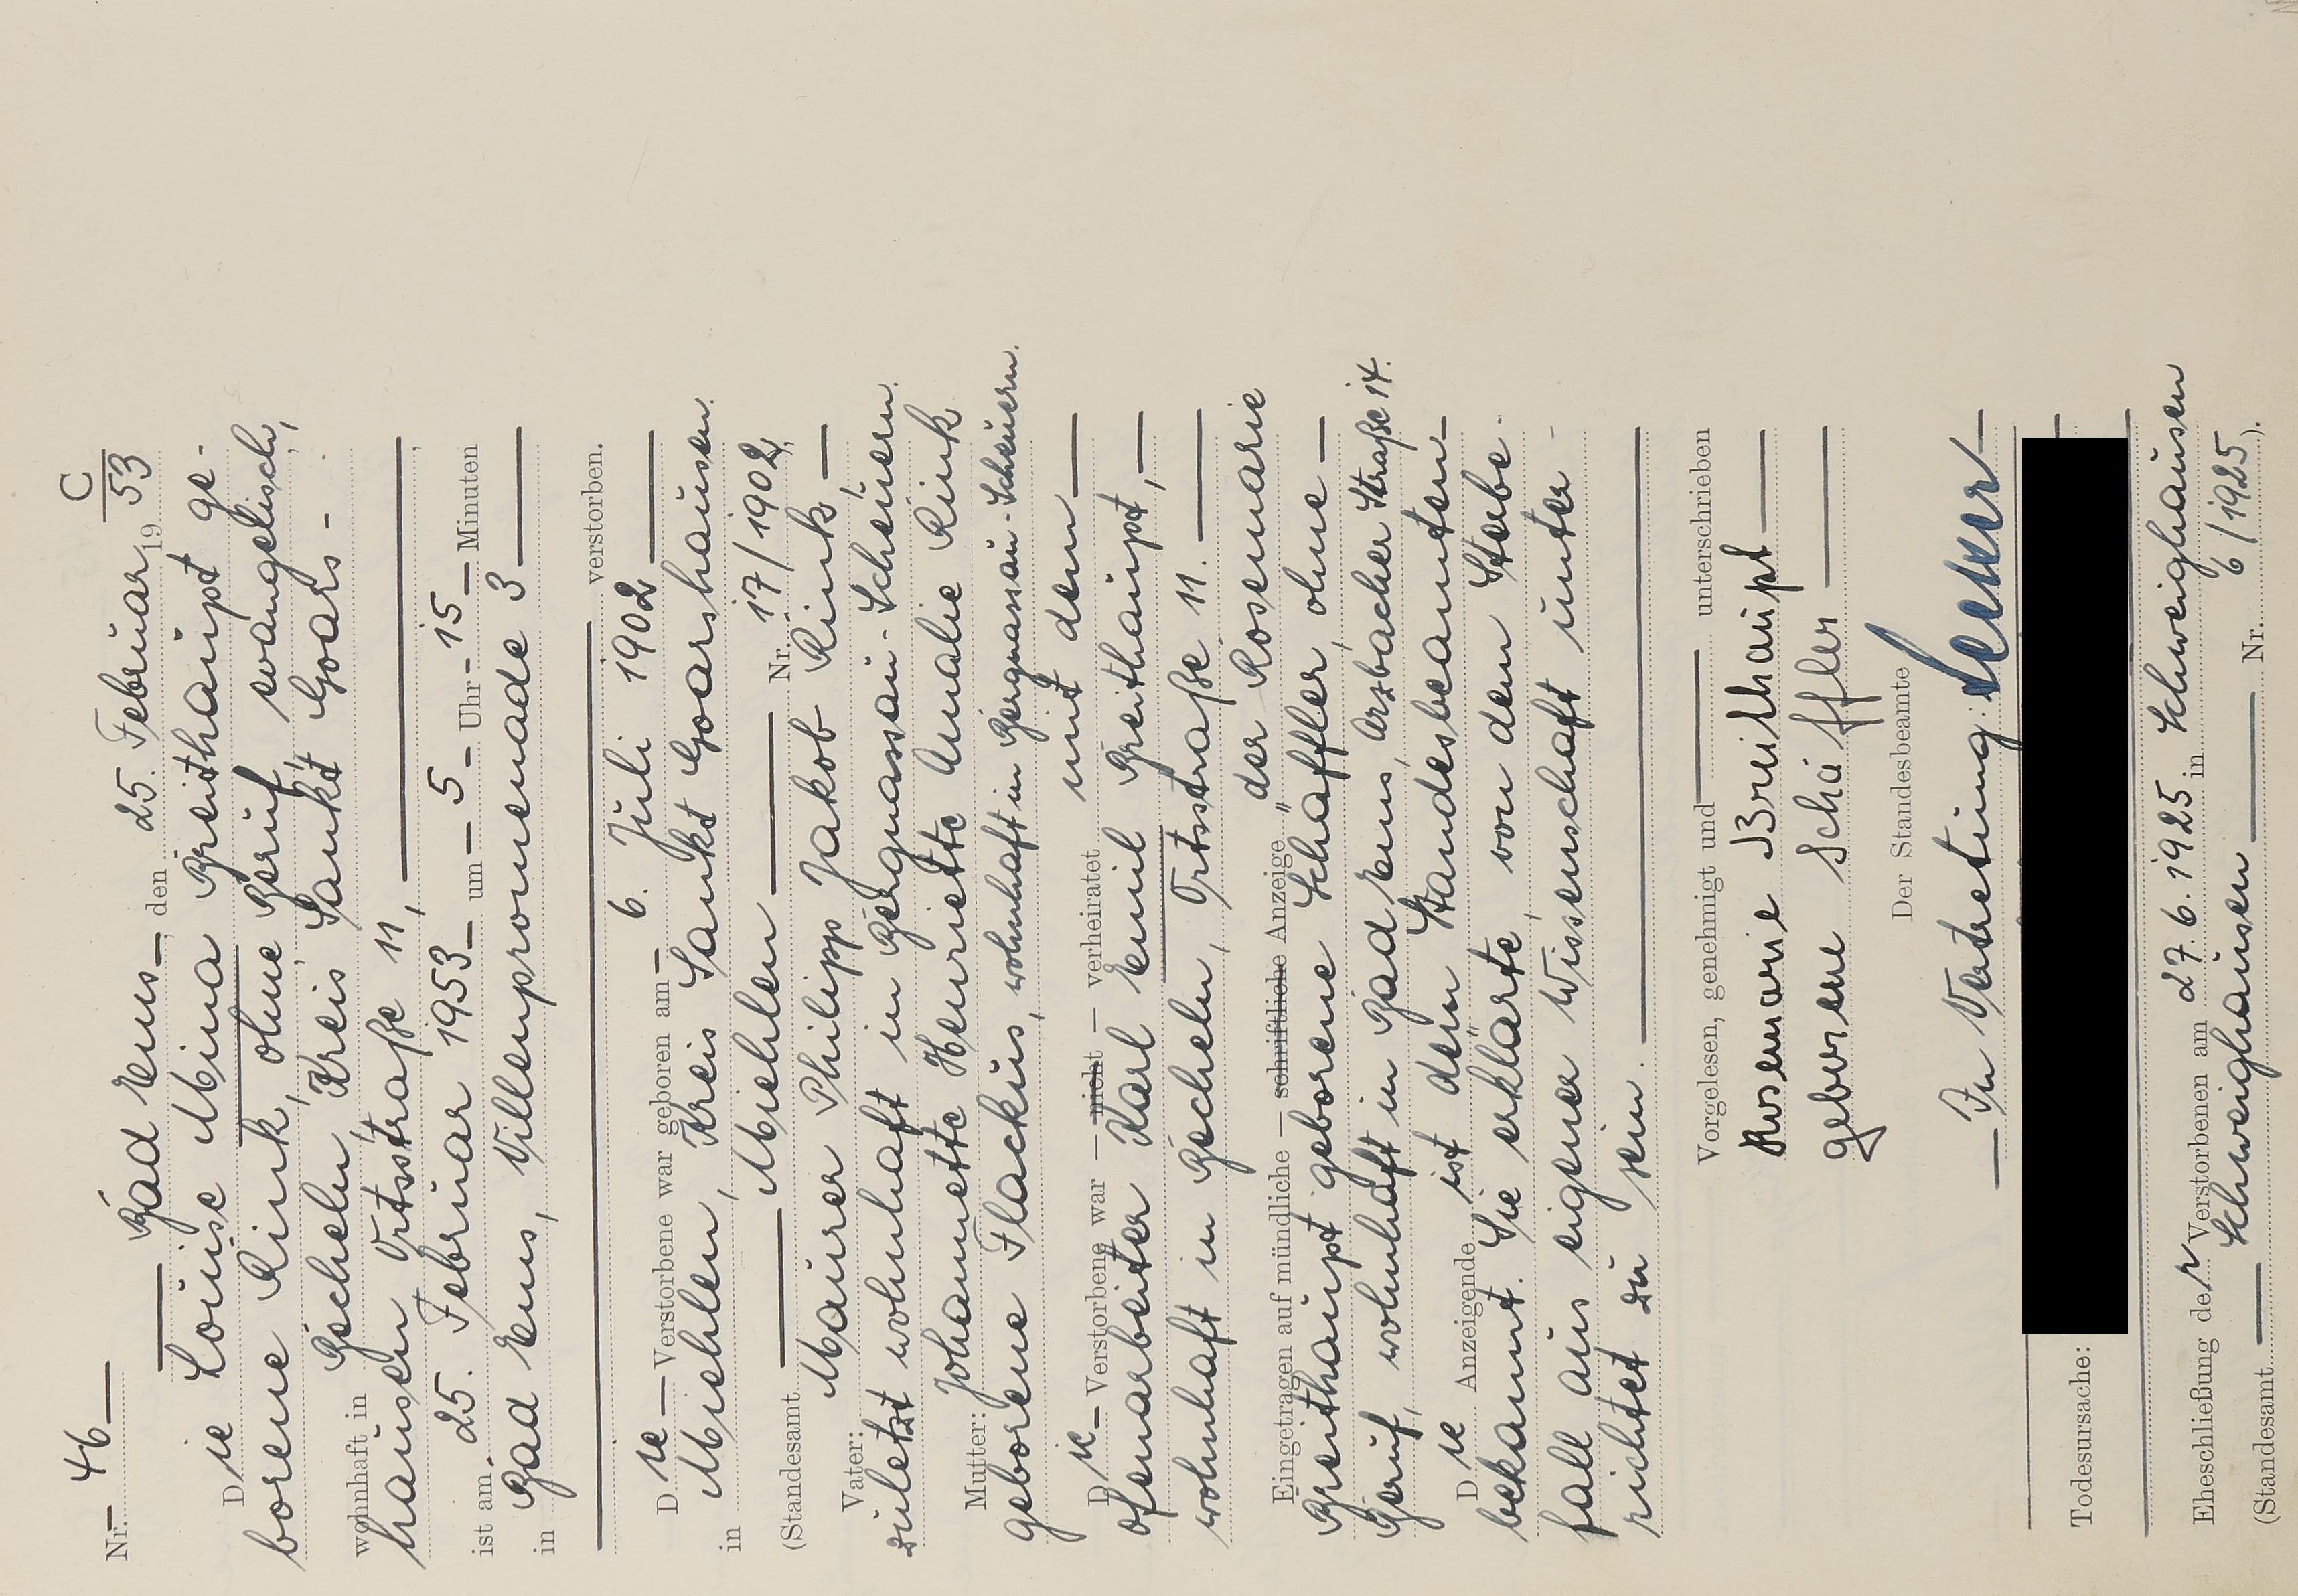 C
Nr. 46
Bad Ems, den 25. Februar 1953
Die Louise Mina Breithaupt ge-
borene Rink, ohne Beruf, evangelisch,
wohnhaft in Becheln, Kreis Sankt Goars-
hausen, Ortsstraße 11,
ist am 25. Februar 1953 um 5 Uhr 15 Minuten
in Bad Ems, Villenpromenade 3
verstorben.
Die Verstorbene war geboren am 6. Juli 1902
in Miehlen, Kreis Sankt Goarshausen.
(Standesamt Miehlen Nr. 17/1902)
Vater: Maurer Philipp Jakob Rink,
zuletzt wohnhaft in Bergnassau-Scheuern.
Mutter: Johannette Henriette Amalie Rink
geborene Flackus, wohnhaft in Bergnassau-Scheuern.
Die Verstorbene war — nicht — verheiratet mit dem
Ofenarbeiter Karl Emil Breithaupt,
wohnhaft in Becheln, Ortsstraße 11.
Eingetragen auf mündliche — schriftliche Anzeige der Rosemarie
Breithaupt geborene Schäffler, ohne
Beruf, wohnhaft in Bad Ems, Arzbacher Straße 14.
Die Anzeigende ist dem Standesbeamten
bekannt. Sie erklärte, von dem Sterbe-
fall aus eigener Wissenschaft unter-
richtet zu sein.
Vorgelesen, genehmigt und unterschrieben
Rosemarie Breithaupt
geborene Schäffler
Der Standesbeamte
In Vertretung:
Todesursache:
Eheschließung der Verstorbenen am 27. 6. 1925 in Schweighausen
(Standesamt Schweighausen Nr. 6/1925).